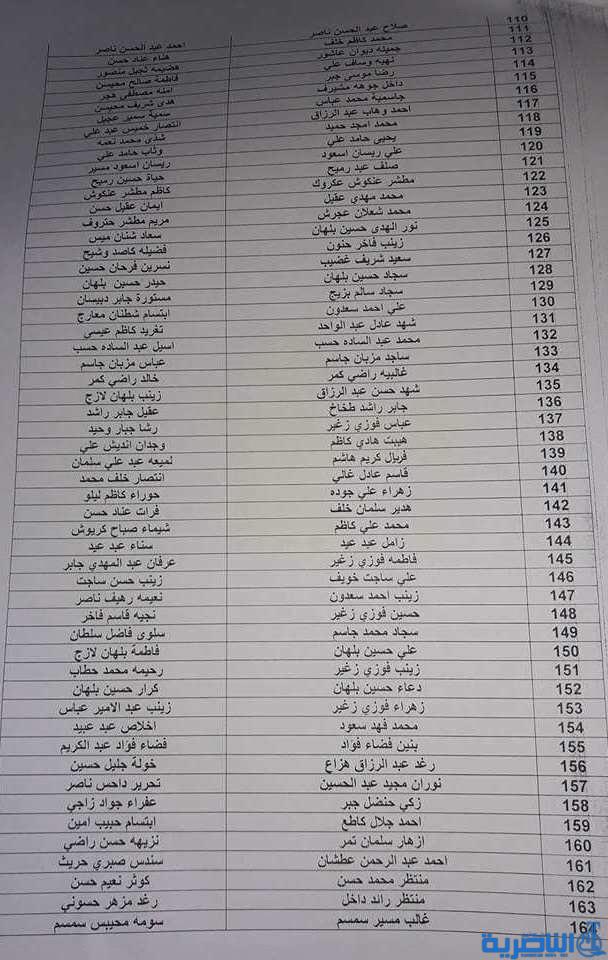 110 صلاح عبد الحسن ناصر احمد عبد الحسن ناصر
111 محمد كاظم خلف هناء عناد حسن
112 جميله ديوان عاشور هضيمه ثجيل منصور
113 نهيه وساف علي فاطمة صالح محيسن
114 رضا موسى جبر امنه مصطفى هجر
115 داخل جوهه مشيرف هدى شريف محيسن
116 جاسمية محمد عباس سمية سمير عجيل
117 احمد وهاب عبد الرزاق انتصار خميس عبد علي
118 محمد امجد حميد شذى محمد نعمه
119 يحيى حامد علي وثاب حامد علي
120 علي ريسان اسعود ريسان اسعود مسير
121 صلف عيد رميح حياة حسين رميح
122 مطشر عنكوش عكروك كاظم مطشر عنكوش
123 محمد مهدي عقيل ايمان عقيل حسن
124 محمد شعلان عجرش مريم مطشر حتروف
125 نور الهدى حسين بلهان سعاد شنان ميس
126 زينب فاخر حنون فضيله كاصد وشيح
127 سعيد شريف غضيب نسرين فرحان حسين
128 سجاد حسين بلهان حيدر حسين بلهان
129 سجاد سالم بزيج مستورة جابر دبيسان
130 علي احمد سعدون ابتسام شطنان معارج
131 شهد عادل عبد الواحد تغريد كاظم عيسى
132 محمد عبد الساده حسب اسيل عبد الساده حسب
133 ساجد مزبان جاسم عباس مزبان جاسم
134 غالبيه راضي كمر خالد راضي كمر
135 شهد حسن عبد الرزاق زينب بلهان لازج
136 جابر راشد طخاخ عقيل جابر راشد
137 عباس فوزي زغير رشا جبار وحيد
138 هيبت هادي كاظم وجدان انديش علي
139 فريال كريم هاشم لميعه عبد علي سلمان
140 قاسم عادل غالي انتصار خلف محمد
141 زهراء علي جوده حوراء كاظم ليلو
142 هدير سلمان خلف فرات عناد حسن
143 محمد علي كاظم شيماء صباح كريوش
144 زامل عبد عيد سناء عبد عيد
145 فاطمه فوزي زغير عرفان عبد المهدي جابر
146 علي ساجت خويف زينب حسن ساجت
147 زينب احمد سعدون نعيمه رهيف ناصر
148 حسين فوزي زغير نجيه قاسم فاخر
149 سجاد محمد جاسم سلوى فاضل سلطان
150 علي حسين بلهان فاطمة بلهان لازج
151 زينب فوزي زغير رحيمه محمد حطاب
152 دعاء حسين بلهان كرار حسين بلهان
153 زهراء فوزي زغير زينب عبد الامير عباس
154 محمد فهد سعود اخلاص عبد عبيد
155 بنين فضاء فؤاد فضاء فؤاد عبد الكريم
156 رغد عبد الرزاق هزاع خولة جليل حسين
157 نوران مجيد عبد الحسين تحرير داحس ناصر
158 زكي حنضل جبر عفراء جواد زاجي
159 احمد جلال كاطع ابتسام حبيب امين
160 ازهار سلمان تمر نزيهه حسن راضي
161 احمد عبد الرحمن عطشان سندس صبري حريث
162 منتظر محمد حسن كوثر نعيم حسن
163 منتظر رائد داخل رغد مزهر حسوني
164 غالب مسير سمسم سومه محيبس سمسم
الناصرية